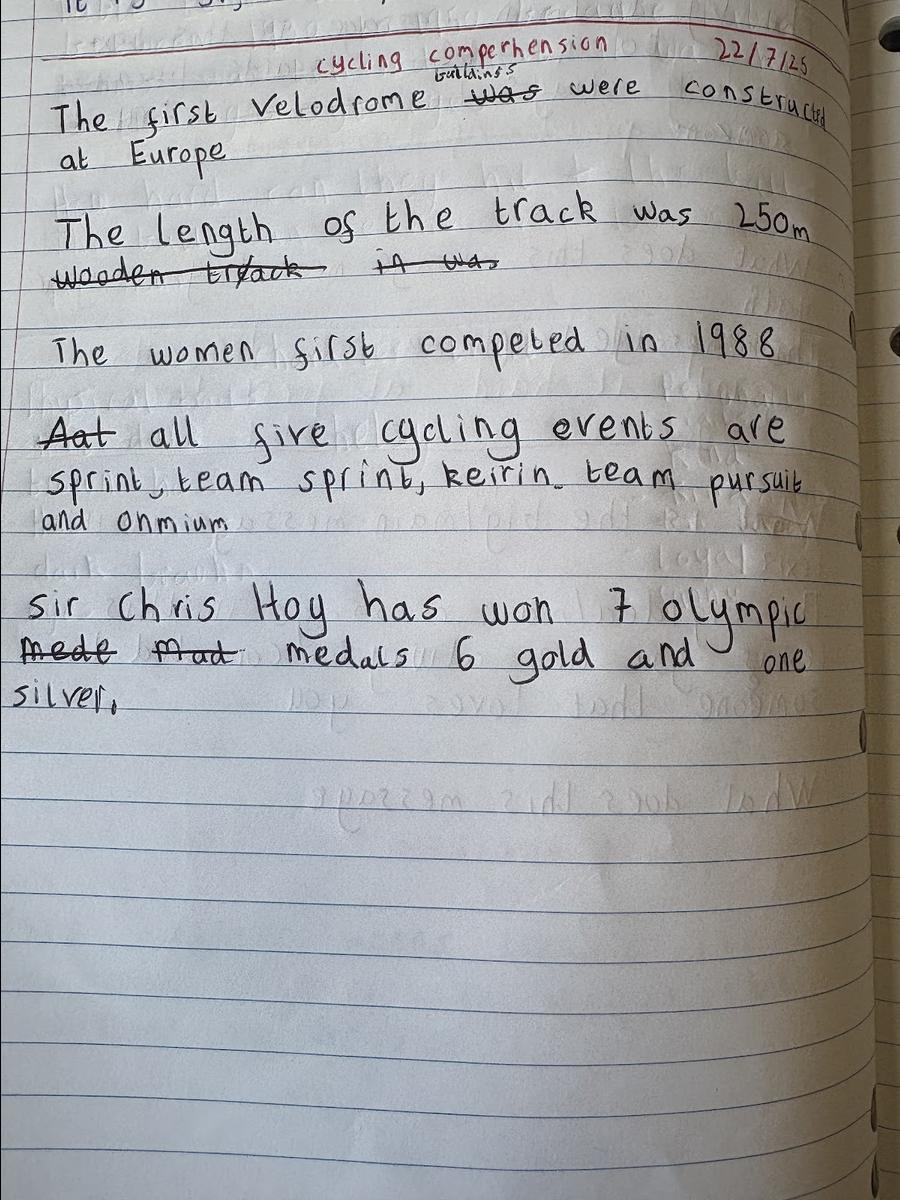 cycling comperhension 22/7/25
The first Velodrome buildings ~~was~~ were constructed
at Europe
The length of the track was 250m
~~wooden track~~ ~~in was~~
The women first competed in 1988
~~Aat~~ all five cycling events are
sprint, team sprint, keirin team pursuit
and onmium
Sir Chris Hoy has won 7 olympic
~~mede~~ ~~mad~~ medals 6 gold and one
silver.